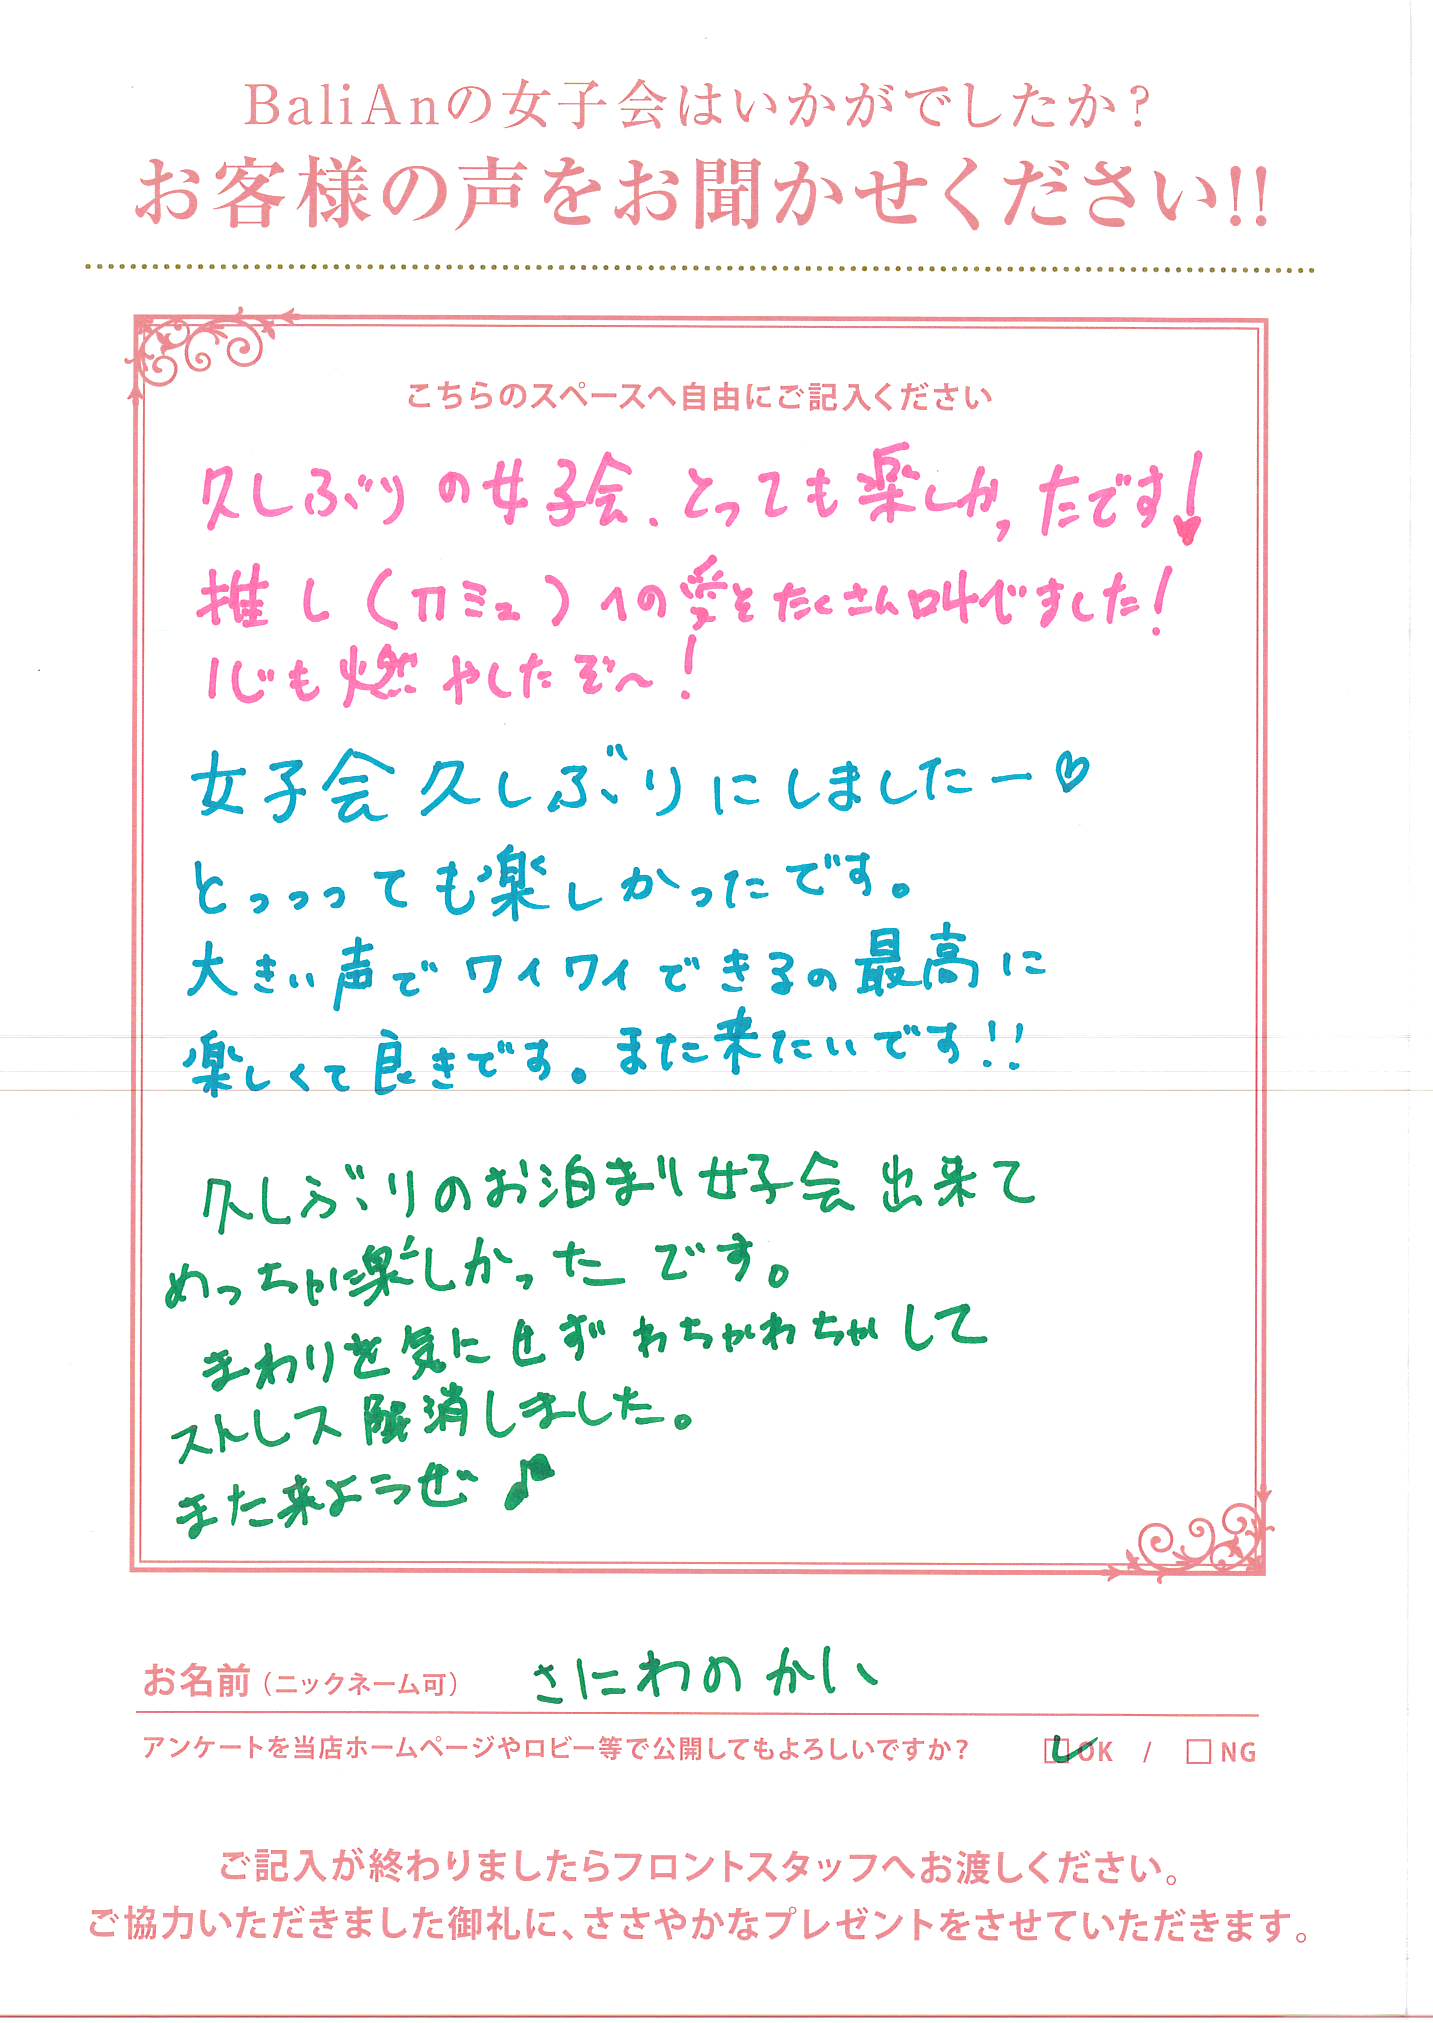 BaliAnの女子会はいかがでしたか？
お客様の声をお聞かせください!!
こちらのスペースへ自由にご記入ください
久しぶりの女子会、とっても楽しかったです!♥
推し(カミュ)への愛をたくさん叫びました!
心も燃やしたぞ〜!
女子会久しぶりにしましたー♡
とっっっても楽しかったです。
大きい声でワイワイできるの最高に
楽しくて良きです。また来たいです!!
久しぶりのお泊まり女子会出来て
めっちゃ楽しかったです。
まわりを気にせずわちゃわちゃして
ストレス解消しました。
また来ようぜ♪
お名前（ニックネーム可） さにわのかい
アンケートを当店ホームページやロビー等で公開してもよろしいですか？ ☑OK / □NG
ご記入が終わりましたらフロントスタッフへお渡しください。
ご協力いただきました御礼に、ささやかなプレゼントをさせていただきます。